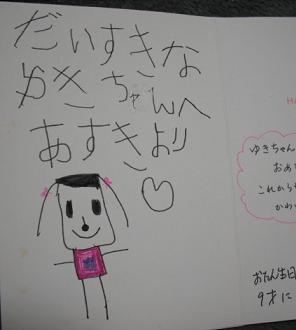 だいすきな
ゆきちゃんへ
あすきより
HA
ゆきちゃん
おめ
これから
かわ
おたん生日
9才に